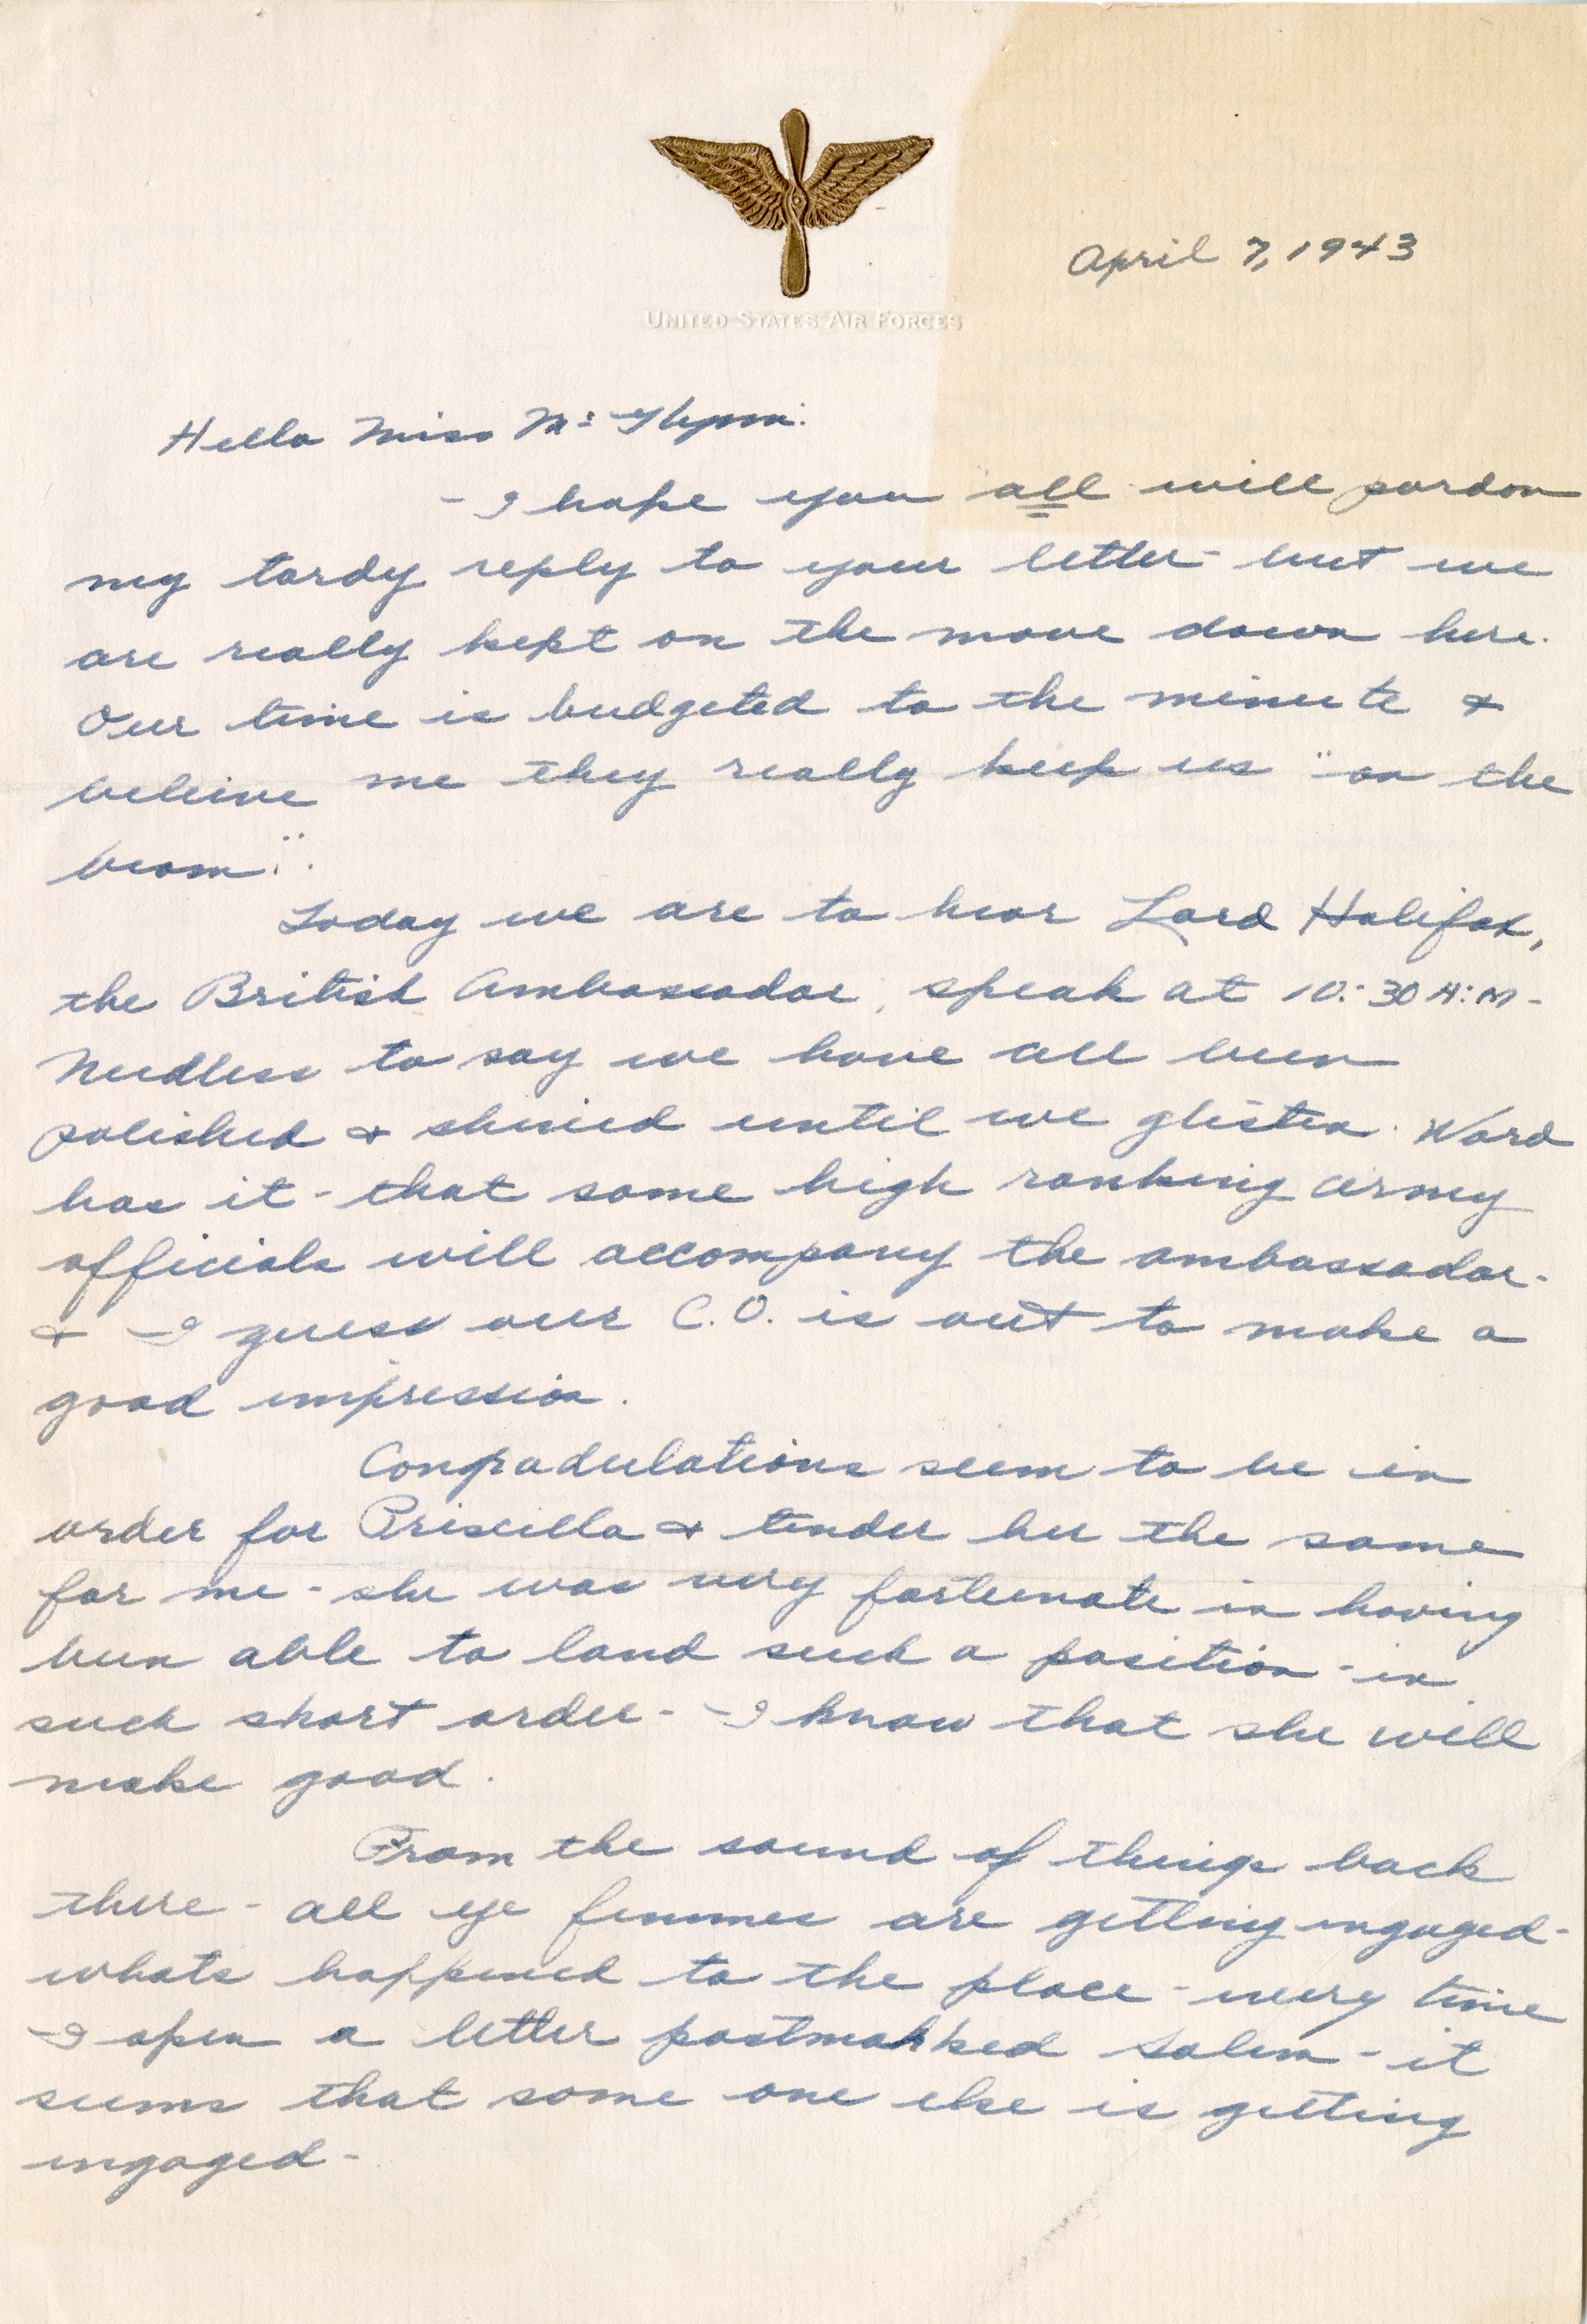 April 7, 1943
UNITED STATES AIR FORCES
Hello Miss
- I hope you all will pardon
my tardy reply to your letter - but we
are really kept on the move down here.
Our time is budgeted to the minute &
beleive me they really keep us "on the
beam".
Today we are to hear Lord Halifax,
the British Ambassador, speak at 10:30 A:M -
Needless to say we have all been
polished & shined until we glisten. Word
has it - that some high ranking army
officials will accompany the ambassador -
& I guess our C.O. is out to make a
good impression.
Congradulations seem to be in
order for Priscilla & tender her the same
for me - she was very fortunate in having
been able to land such a position - in
such short order - I know that she will
make good.
From the sound of things back
there - all ye femmes are getting engaged -
whats happened to the place - every time
I open a letter postmarked Salem - it
seems that some one else is getting
engaged -